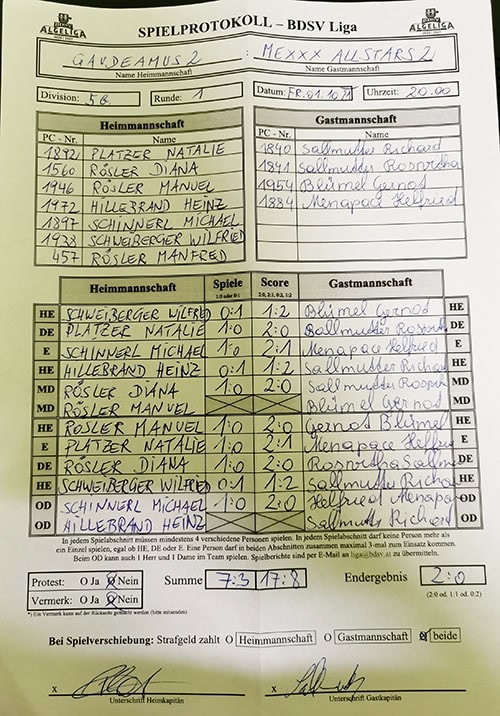 ALGELIGA SPIELPROTOKOLL – BDSV Liga ALGELIGA
GAUDEAMUS 2 : MEXXX ALLSTARS 2
Name Heimmannschaft Name Gastmannschaft
Division: 5B. Runde: 1 Datum: FR. 01.10.21 Uhrzeit: 20.00
Heimmannschaft Gastmannschaft
PC - Nr. Name PC - Nr. Name
1892 PLATZER NATALIE 1840 Sallmutter Richard
1560 RÖSLER DIANA 1841 Sallmutter Roswitha
1946 RÖSLER MANUEL 1954 Blümel Gernot
1972 HILLEBRAND HEINZ 1884 Menapace Helfried
1897 SCHINNERL MICHAEL
1938 SCHWEIBERGER WILFRIED
457 RÖSLER MANFRED
Heimmannschaft Spiele Score Gastmannschaft
1:0 oder 0:1 2:0, 2:1, 0:2, 1:2
HE SCHWEIBERGER WILFRED 0:1 1:2 Blümel Gernot HE
DE PLATZER NATALIE 1:0 2:0 Sallmutter DE
E SCHINNERL MICHAEL 1:0 2:1 Menapace Helfried E
HE HILLEBRAND HEINZ 0:1 1:2 Sallmutter Richard HE
MD RÖSLER DIANA 1:0 2:0 Sallmutter MD
MD RÖSLER MANUEL Blümel Gernot MD
HE RÖSLER MANUEL 1:0 2:0 Gernot Blümel HE
E PLATZER NATALIE 1:0 2:1 Menapace Helfried E
DE RÖSLER DIANA 1:0 2:0 Roswitha Sallm DE
HE SCHWEIBERGER WILFRIED 0:1 1:2 Sallmutter Richa HE
OD SCHINNERL MICHAEL 1:0 2:0 Helfried Menapa OD
OD HILLEBRAND HEINZ Sallmutter Richard OD
In jedem Spielabschnitt müssen mindestens 4 verschiedene Personen spielen. In jedem Spielabschnitt darf keine Person mehr als
ein Einzel spielen, egal ob HE, DE oder E. Eine Person darf in beiden Abschnitten zusammen maximal 3-mal zum Einsatz kommen.
Beim OD kann auch 1 Herr und 1 Dame im Team spielen. Spielberichte sind per E-Mail an liga@bdsv.at zu übermitteln.
Protest: O Ja O Nein Summe 7:3 17:8 Endergebnis 2:0
Vermerk: O Ja O Nein (2:0 od. 1:1 od. 0:2)
*) Ein Vermerk kann auf der Rückseite gemacht werden (bitte mitsenden)
Bei Spielverschiebung: Strafgeld zahlt O Heimmannschaft O Gastmannschaft O beide
x x
Unterschrift Heimkapitän Unterschrift Gastkapitän